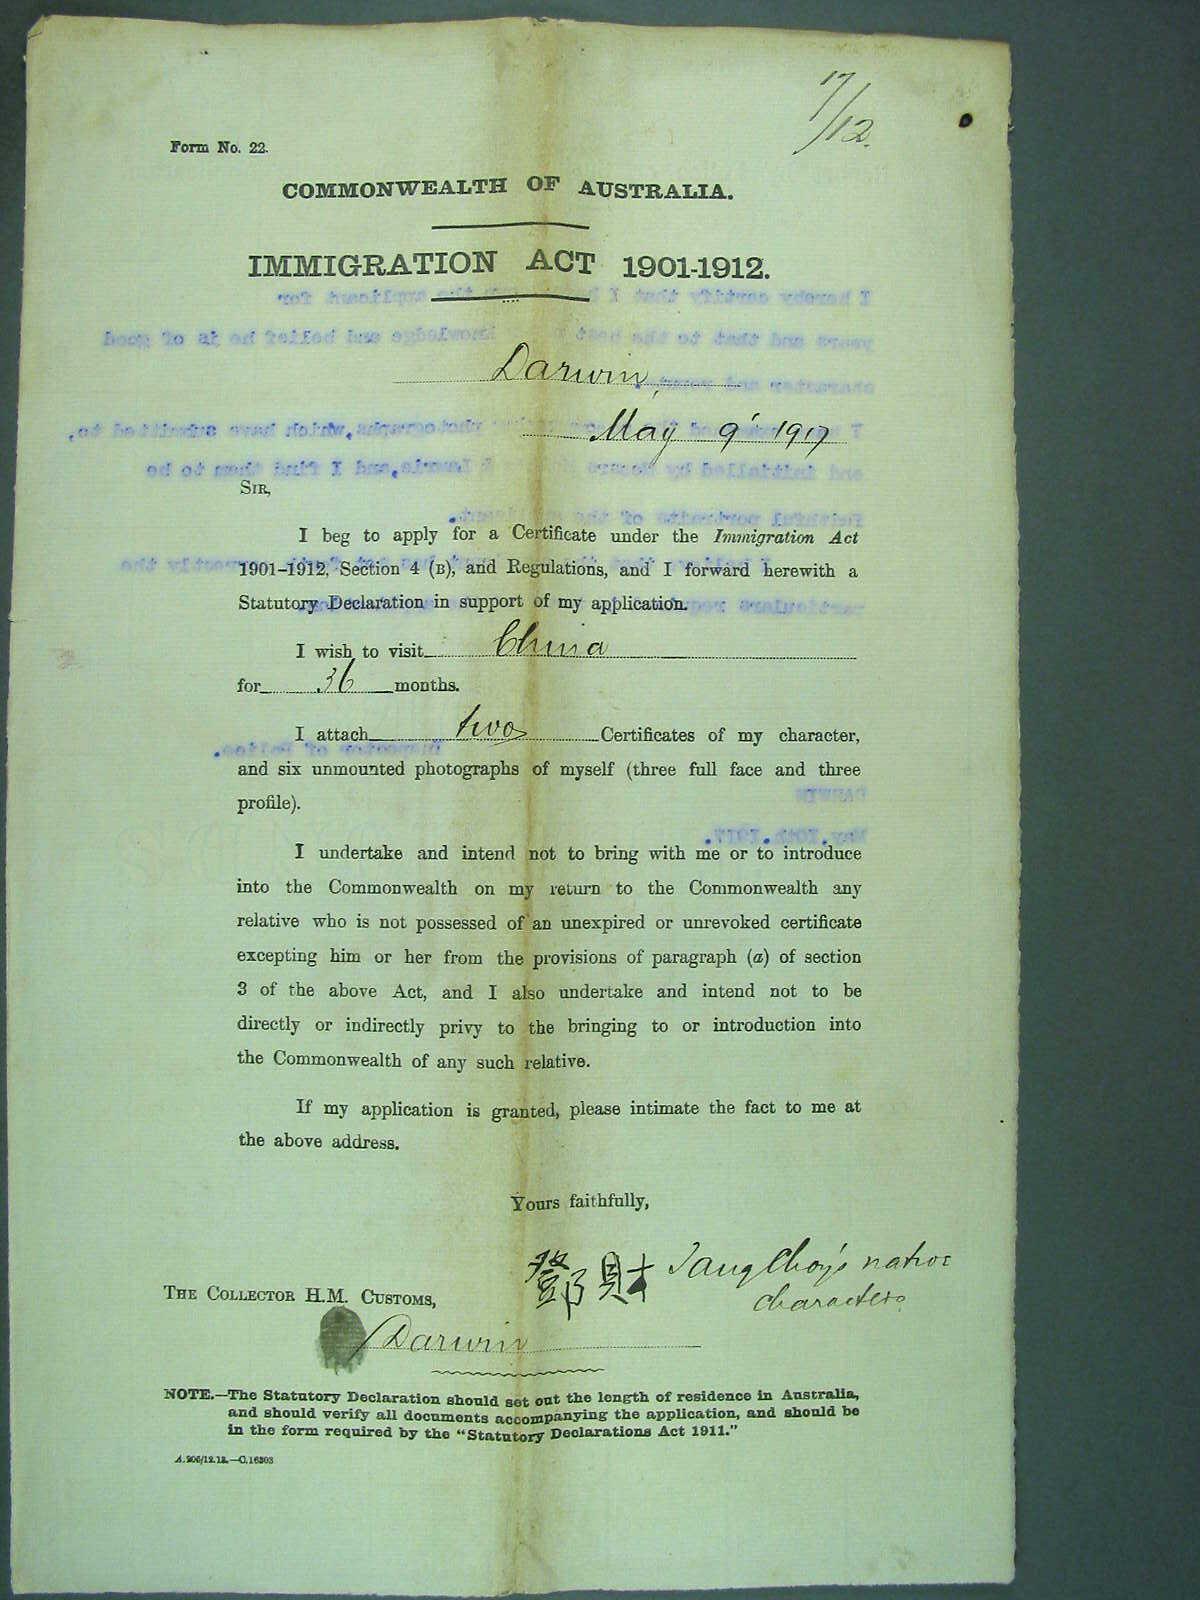 17/12.
Form No. 22.
COMMONWEALTH OF AUSTRALIA.
IMMIGRATION ACT 1901-1912.
Darwin,
May 9 1917
SIR,
I beg to apply for a Certificate under the Immigration Act
1901–1912, Section 4 (B), and Regulations, and I forward herewith a
Statutory Declaration in support of my application.
I wish to visit China
for 36 months.
I attach two Certificates of my character,
and six unmounted photographs of myself (three full face and three
profile).
I undertake and intend not to bring with me or to introduce
into the Commonwealth on my return to the Commonwealth any
relative who is not possessed of an unexpired or unrevoked certificate
excepting him or her from the provisions of paragraph (a) of section
3 of the above Act, and I also undertake and intend not to be
directly or indirectly privy to the bringing to or introduction into
the Commonwealth of any such relative.
If my application is granted, please intimate the fact to me at
the above address.
Yours faithfully,
鄧財 Tang Choy's native
characters
THE COLLECTOR H.M. CUSTOMS,
Darwin
NOTE.—The Statutory Declaration should set out the length of residence in Australia,
and should verify all documents accompanying the application, and should be
in the form required by the "Statutory Declarations Act 1911."
A.206/12.12.—C.16303